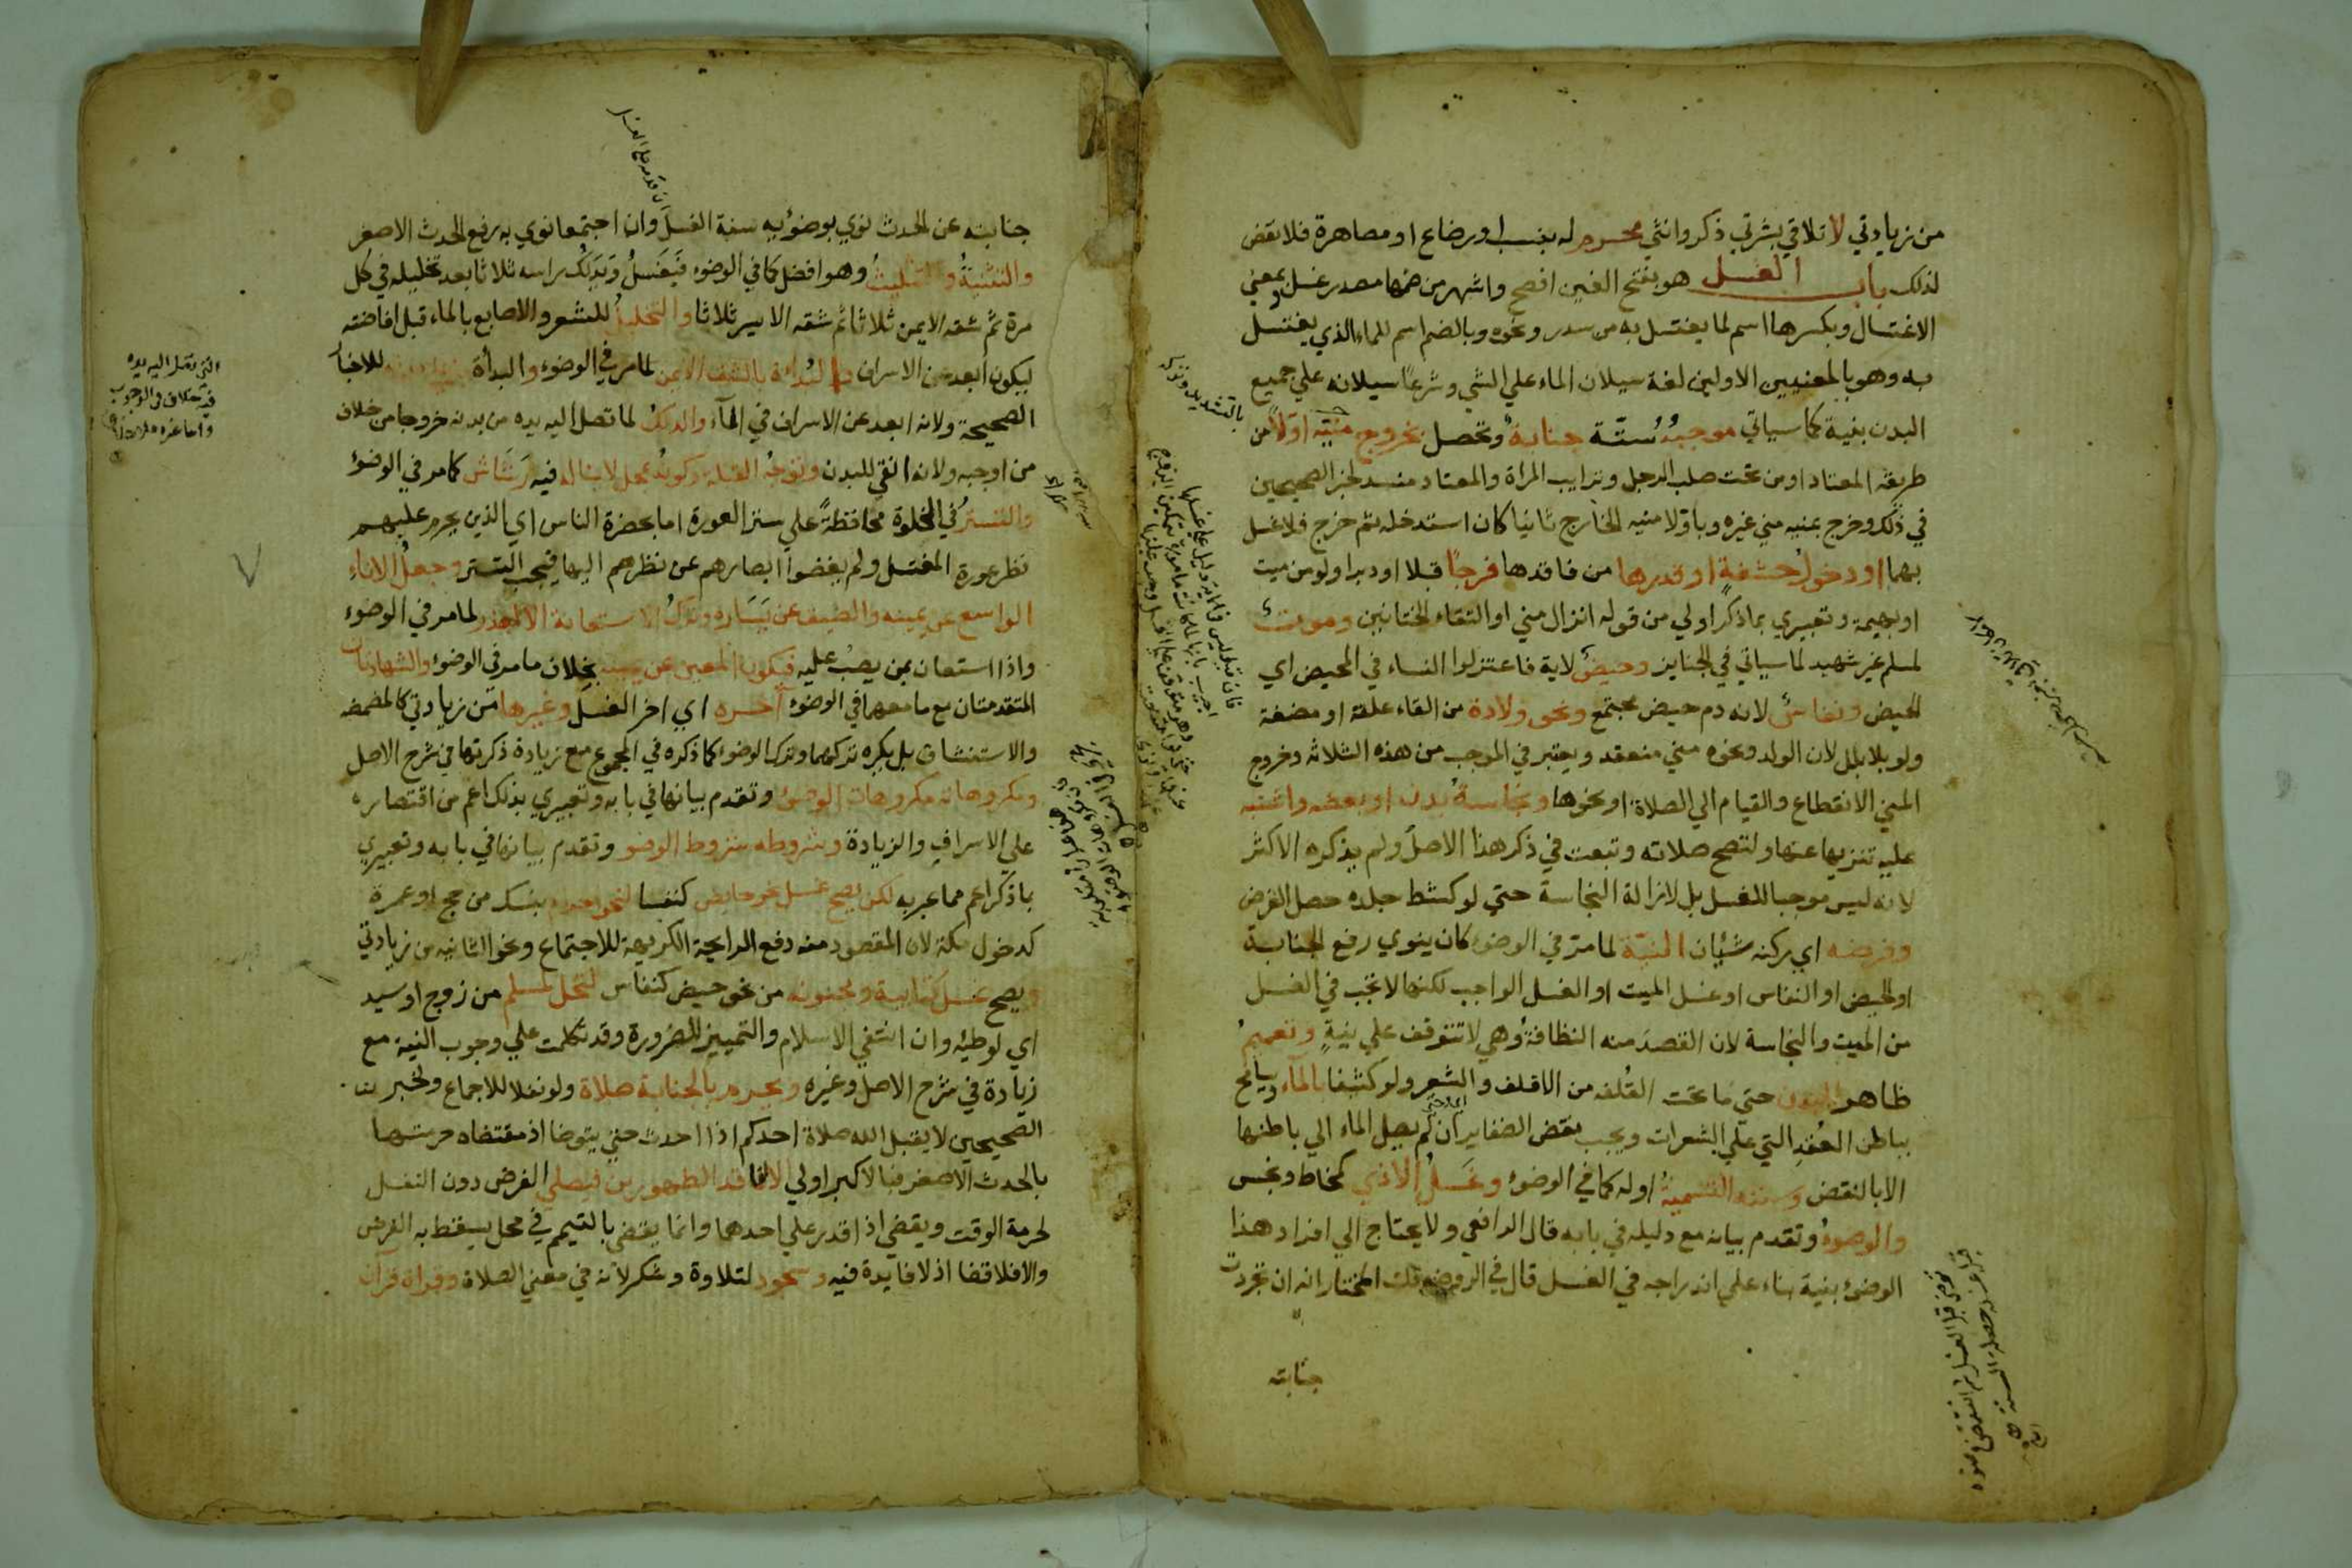 من زيادتي لا تلاقي بشرتي ذكر وانثي محرم له بنسب او رضاع او مصاهرة فلا نقض
لذلك باب الغسل هو بفتح الغين افصح واشهر من ضمها مصدر غسل وبمعني
الاغتسال وبكسرها اسم لما يغتسل به من سدر ونحوه وبالضم اسم للماء الذي يغتسل
به وهو بالمعنيين الاولين لغة سيلان الماء علي الشي وشرعا سيلانه علي جميع
البدن بنية كما سياتي موجبه ستة جنابة وتحصل بخروج منيه اولا من
طريقه المعتاد او من تحت صلب الرجل وترايب المراة والمعتاد منسد لخبر الصحيحين
في ذلك وخرج بمنيه مني غيره وباولا منيه الخارج ثانيا كان استدخله ثم خرج فلا غسل
بهما او دخول حشفة او قدرها من فاقدها فرجا قبلا او دبرا ولو من ميت
او بهيمة وتعبيري بما ذكر اولي من قوله انزال مني او التقاء الختانين وموت
لمسلم غير شهيد لما سياتي في الجنايز وحيض لاية فاعتزلوا النساء في المحيض اي
الحيض ونفاس لانه دم حيض مجتمع ونحو ولادة من القاء علقة او مضغة
ولو بلا بلل لان الولد ونحوه مني منعقد ويعتبر في الموجب من هذه الثلاثه وخروج
المني الانقطاع والقيام الي الصلاة او نحوها ونجاسة بدن او بعضه واشتبه
عليه تنزيها عنها ولتصح صلاته وتبعت في ذكر هذا الاصل ولم يذكره الاكثر
لانه ليس موجبا للغسل بل لازالة النجاسة حتي لو كشط جلده حصل الغرض
وفرضه اي ركنه شيئان النية لما مر في الوضوء كان ينوي رفع الجنابة
او الحيض او النفاس او غسل الميت او الغسل الواجب لكنها لا تجب في الغسل
من الميت والنجاسة لان القصد منه النظافة وهي لا تتوقف علي نية وتعميم
ظاهر البدن حتي ما تحت القلفه من الاقلف والشعر ولو كثيفا بالماء ويسامح
بباطن العقد التي علي الشعرات ويجب نقض الضفاير ان لم يصل الماء الي باطنها
الا بالنقض وسننه التسمية اوله كما في الوضوء وغسل الاذي كمخاط ونجس
والوضوء وتقدم بيانه مع دليله في بابه قال الرافعي ولا يحتاج الي افراد هذا
الوضوء بنية بناء علي اندراجه في الغسل قال في الروضة قلت المختار انه ان تجردت
جنابته
بالتشديد
جنابته عن الحدث نوي بوضوئه سنة الغسل وان اجتمعا نوي به رفع الحدث الاصغر
والتثنية والتثليث وهو افضل كما في الوضوء فيغسل ويدلك راسه ثلاثا بعد تخليله في كل
مرة ثم شقه الايمن ثلاثا ثم شقه الايسر ثلاثا والتخليل للشعر والاصابع بالماء قبل افاضته
ليكون ابعد عن الاسراف والبداءة بالشق الايمن لما مر في الوضوء والبدأة للاخبار
الصحيحة ولانه ابعد عن الاسراف في الماء والدلك لما تصل اليه يده من بدنه خروجا من خلاف
من اوجبه ولانه انقي للبدن وتوجه القبلة وكونه بمحل لا يناله فيه رشاش كما مر في الوضوء
والتستر في الخلوة محافظة علي ستر العورة اما بحضرة الناس اي الذين يحرم عليهم
نظر عورة المغتسل ولم يغضوا ابصارهم عن نظرهم اليها فيجب التستر وجعل الاناء
الواسع عن يمينه والضيف عن يساره وترك الاستعانة الا لعذر لما مر في الوضوء
واذا استعان بمن يصب عليه فيكون المعين عن يمينه بخلاف ما مر في الوضوء والشهادتان
المتقدمتان مع ما معهما في الوضوء اخره اي اخر الغسل وغيرها من زيادتي كالمضمضه
والاستنشاق بل يكره تركهما وترك الوضوء كما ذكره في المجموع مع زيادة ذكرتها في شرح الاصل
ومكروهاته مكروهات الوضوء وتقدم بيانها في بابه وتعبيري بذلك اعم من اقتصاره
علي الاسراف والزيادة وشروطه شروط الوضو وتقدم بيانها في بابه وتعبيري
بما ذكر اعم مما عبر به لكن يصح غسل نحو حايض كنفسا لنحو احرام بنسك من حج او عمرة
كدخول مكة لان المقصود منه دفع الرايحة الكريهة للاجتماع ونحو الثانيه من زيادتي
ويصح غسل كتابية ومجنونه من نحو حيض كنفاس لتحل لمسلم من زوج او سيد
اي لوطيه وان انتفي الاسلام والتمييز للضرورة وقد تكلمت علي وجوب النية مع
زيادة في شرح الاصل وغيره ويحرم بالجنابة صلاة ولو نفلا للاجماع ولخبر
الصحيحين لا يقبل الله صلاة احدكم اذا احدث حتي يتوضا اذ مقتضاه حرمتها
بالحدث الاصغر فبالاكبر اولي الا لفاقد الطهورين فيصلي الفرض دون النفل
لحرمة الوقت ويقضي اذا قدر علي احدهما وانما يقضي بالتيمم في محل يسقط به الفرض
والا فلا قضا اذ لا فايدة فيه وسجود لتلاوة وشكر لانه في معني الصلاة وقراة قرآن